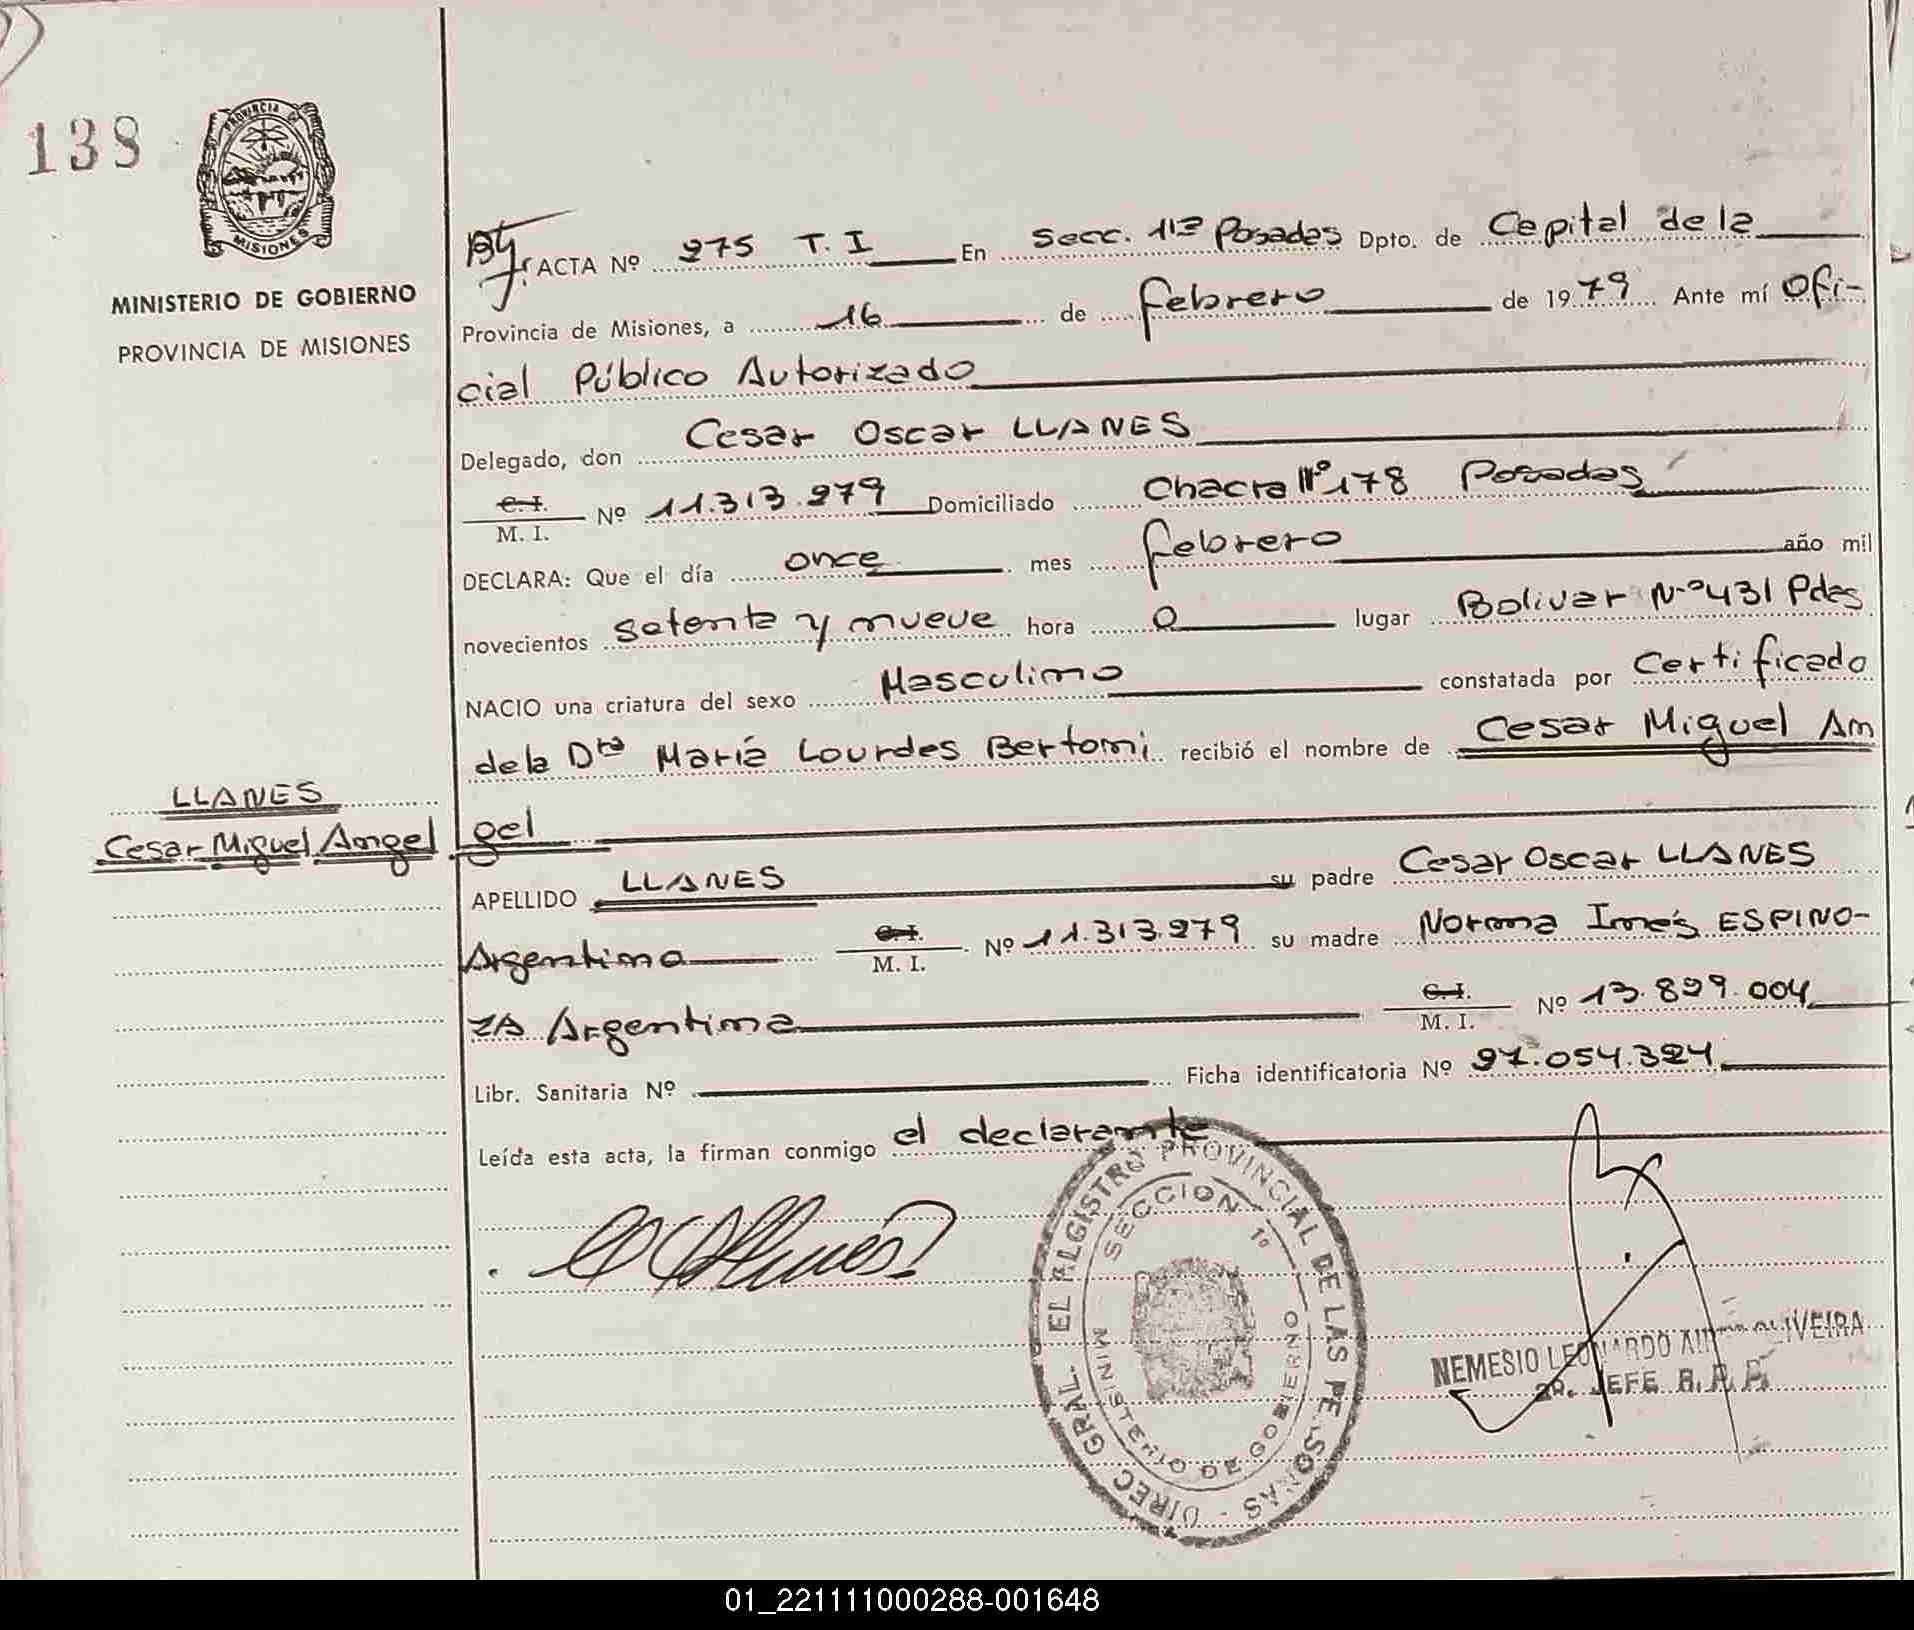 138
PROVINCIA DE
MISIONES
MINISTERIO DE GOBIERNO
PROVINCIA DE MISIONES
ACTA Nº 275 T. I En Secc. 11ª Posadas Dpto. de Capital de la
Provincia de Misiones, a 16 de febrero de 1979 Ante mí Ofi-
cial Público Autorizado
Delegado, don Cesar Oscar LLANES
C. I. M. I. Nº 11.313.279 Domiciliado Chacra Nº 178 Posadas
DECLARA: Que el día once mes febrero año mil
novecientos setenta y nueve hora 0 lugar Bolivar Nº 431 Pdas
NACIO una criatura del sexo Masculino constatada por Certificado
de la Dra María Lourdes Bertoni recibió el nombre de Cesar Miguel An
gel
LLANES
Cesar Miguel Angel
APELLIDO LLANES su padre Cesar Oscar LLANES
Argentino C. I. M. I. Nº 11.313.279 su madre Norma Inés ESPINO-
ZA Argentina C. I. M. I. Nº 13.899.004
Libr. Sanitaria Nº Ficha identificatoria Nº 27.054.324
Leída esta acta, la firman conmigo el declarante
DIREC GRAL. EL REGISTRO PROVINCIAL DE LAS PERSONAS
SECCION 1º
MINISTERIO DE GOBIERNO
NEMESIO LEONARDO
2º. JEFE R. P. P.
01_221111000288-001648